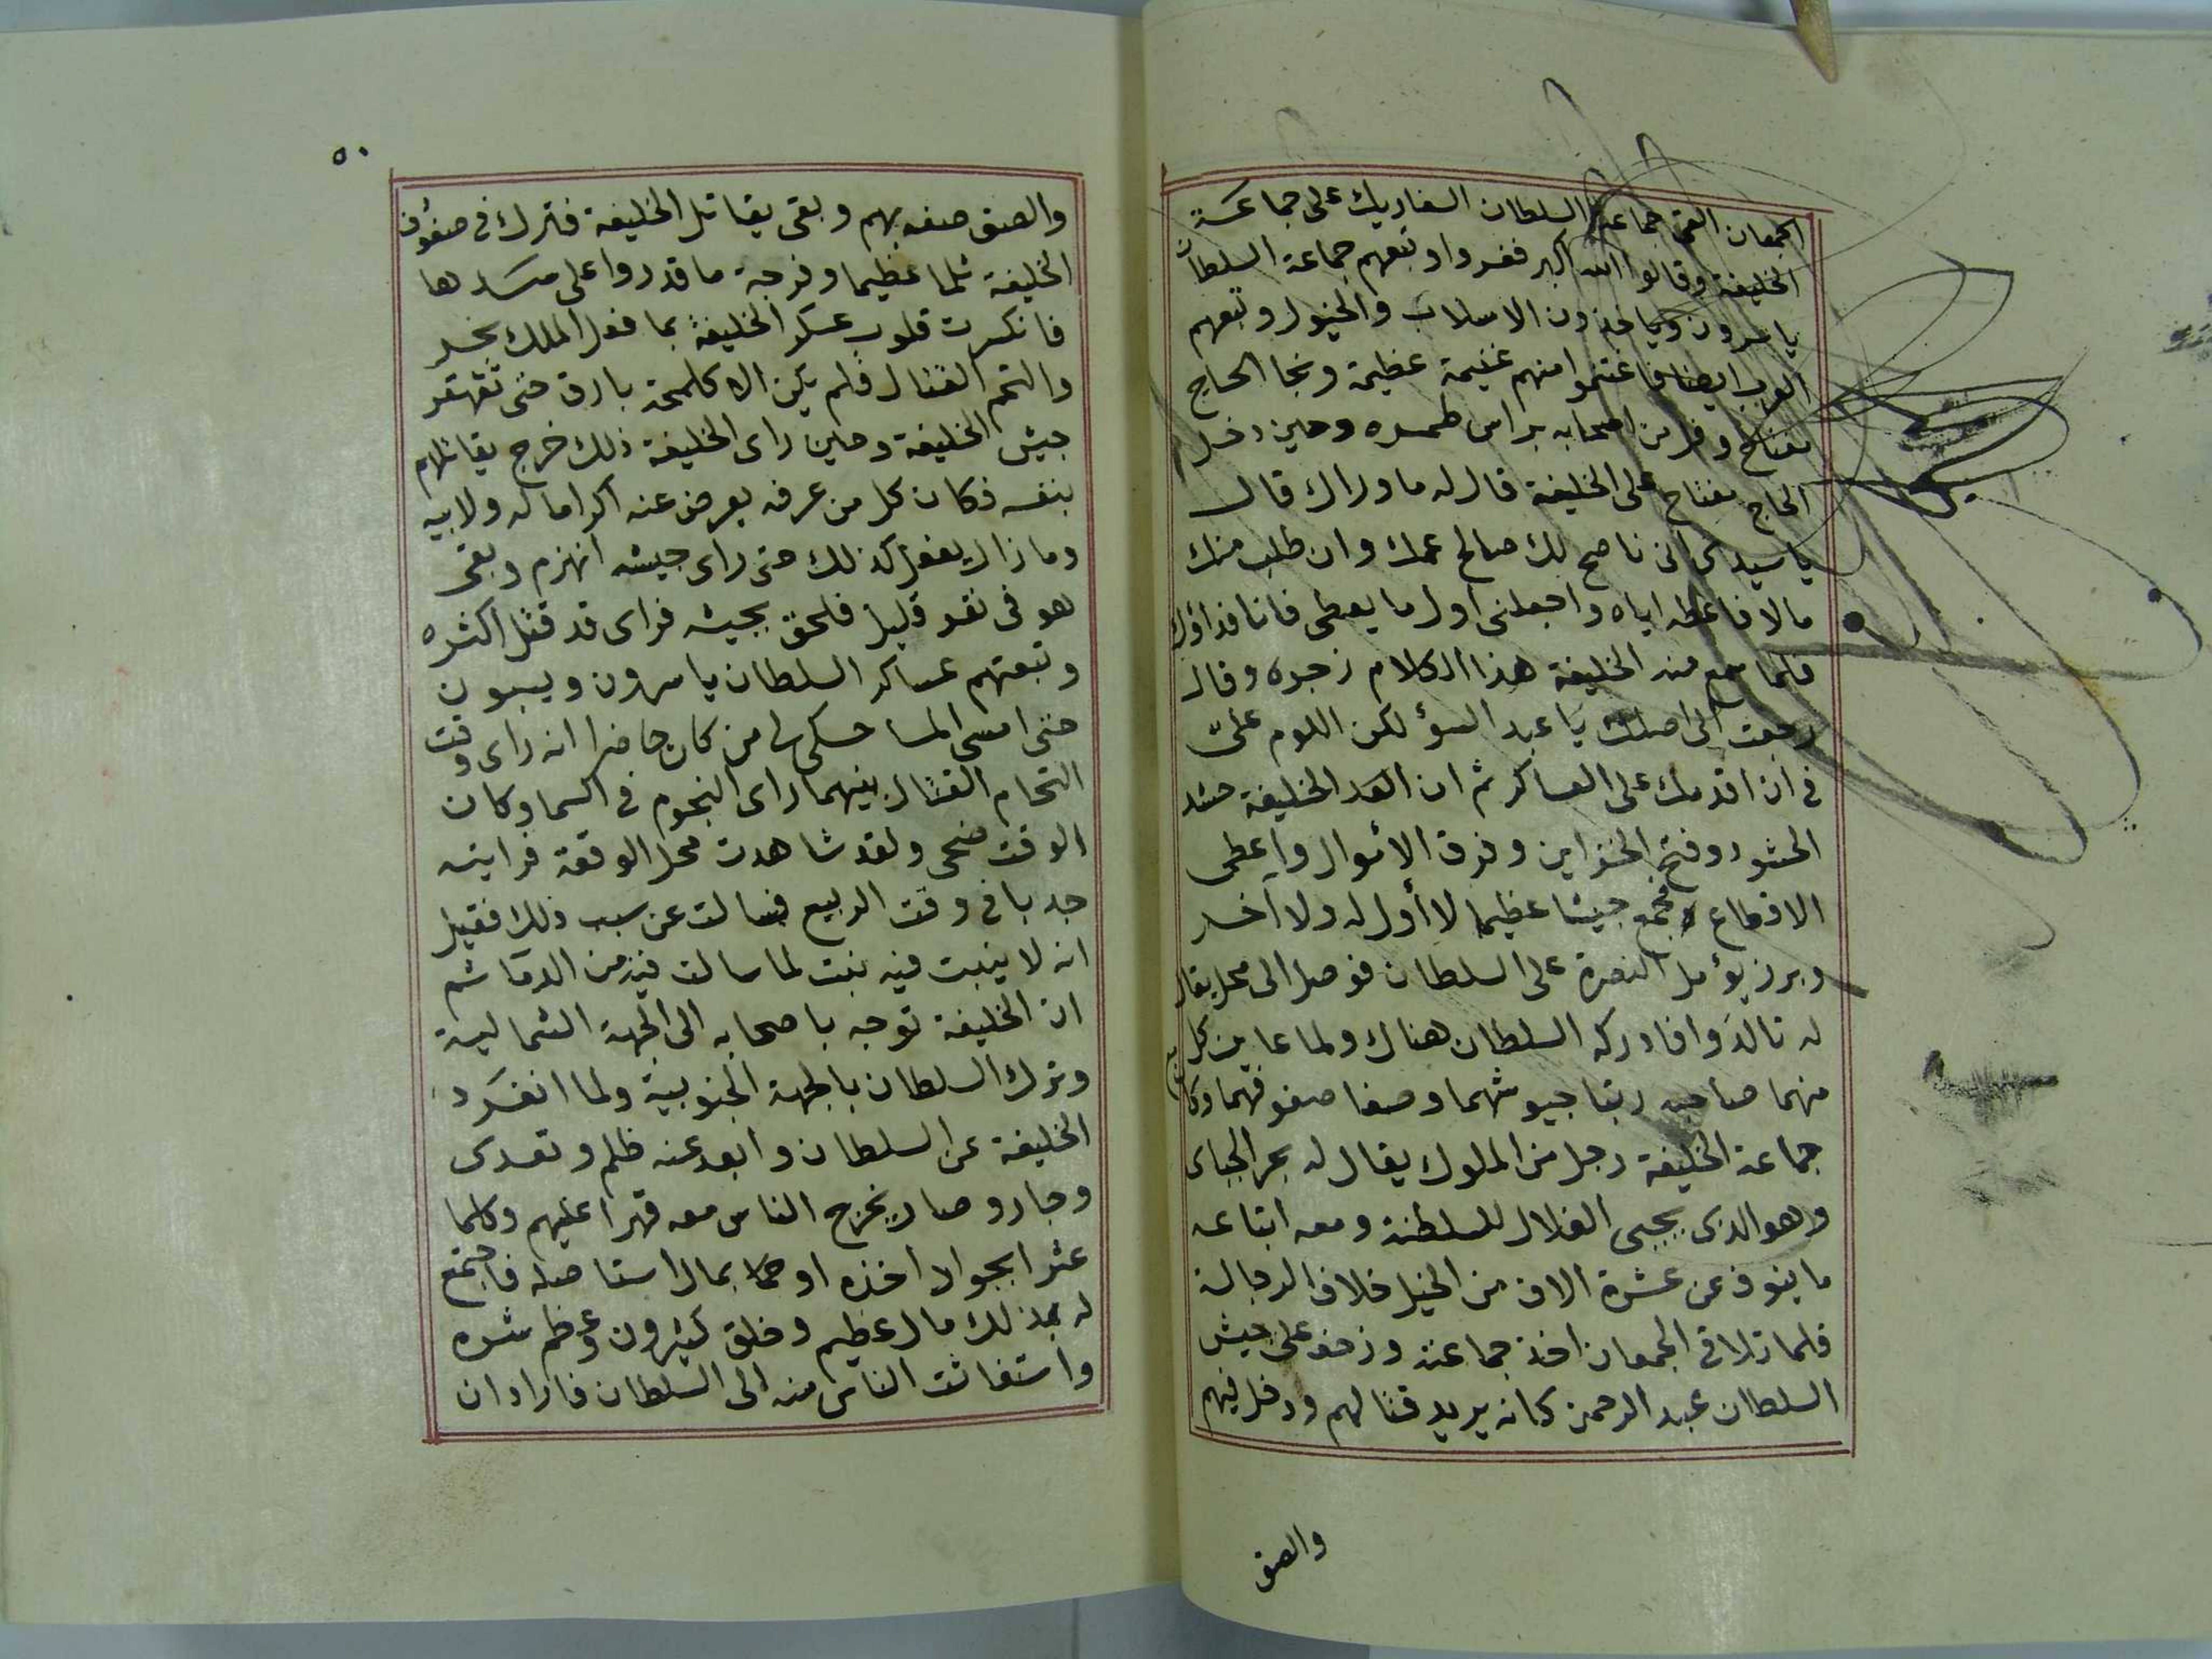 الجمعان القى جماعة السلطان السفاريك على جماعة
الخليفة وقالوا الله اكبر ففروا وتبعهم جماعة السلطان
ياسرون وياخذون الاسلاب والخيول وتبعهم
العرب ايضا فاغتنموا منهم غنيمة عظيمة ونجا الحاج
مفتاح وفر من اصحابه براس طمره وحين دخل
الحاج مفتاح على الخليفة قال له ما وراك قال
يا سيدى انى ناصح لك صالح عمك وان طلب منك
مالا فاعطه اياه واجعلنى اول ما يعطى فانا فداؤك
فلما سمع منه الخليفة هذا الكلام زجره وقال
رجعت الى اصلك يا عبد السؤ لكن اللوم علىّ
فى ان اقدمك على العساكر ثم ان الخليفة حشد
الحشود وفتح الخزاين وفرق الاموال واعطى
الاقطاع فجمع جيشا عظيما لا أول له ولا آخر
وبرز يؤمل النصرة على السلطان فوصل الى محل يقال
له تالدوا فادركه السلطان هناك ولما عاين كل
منهما صاحبه رتبا جيوشهما وصفا صفوفهما وكان
جماعة الخليفة رجل من الملوك يقال له بحر الجباى
وهو الذى يجبى الغلال للسلطنة ومعه اتباعه
ما ينوف عن عشرة الاف من الخيل خلاف الرجالة
فلما تلاقى الجمعان اخذ جماعته وزحف على جيش
السلطان عبد الرحمن كانه يريد قتالهم ودخل فيهم
والصق
٥٠
والصق صفه بهم وبقى يقاتل الخليفة فترك فى صفوف
الخليفة ثلما عظيما وفرجة ما قدروا على سدها
فانكسرت قلوب عسكر الخليفة بما فعل الملك بحر
والتحم القتال فلم يكن الا كلمحة بارق حتى تقهقر
جيش الخليفة وحين راى الخليفة ذلك خرج يقاتلهم
بنفسه فكان كل من عرفه يعرض عنه اكراما له ولابيه
وما زال يفعل كذلك حتى راى جيشه انهزم وبقى
هو فى نفر قليل فلحق بجيشه فراى قد قتل اكثره
وتبعتهم عساكر السلطان ياسرون ويسبون
حتى امسى المسا حكى لى من كان حاضرا انه راى وقت
التحام القتال بينهما راى النجوم فى السما وكان
الوقت ضحى ولقد شاهدت محل الوقعة فرايته
جدبا فى وقت الربيع فسالت عن سبب ذلك فقيل
انه لا ينبت فيه نبت لما سالت فيه من الدما ثم
ان الخليفة توجه باصحابه الى الجهة الشمالية
وترك السلطان بالجهة الجنوبية ولما انفرد
الخليفة عن السلطان وابعد عنه ظلم وتعدى
وجار وصار يخرج الناس معه قهرا عليهم وكلما
عثر بجواد اخذه او بمال استاصله فاجتمع
له بعد ذلك مال عظيم وخلق كثيرون وعظم شره
واستغاثت الناس منه الى السلطان فاراد ان